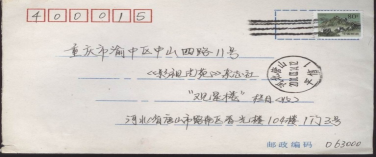 400015
重庆市渝中区中山四路11号
杂志社
"观景楼" 栏目<收>
河北省唐山市路南区 楼104楼1门3号
邮政编码 063000